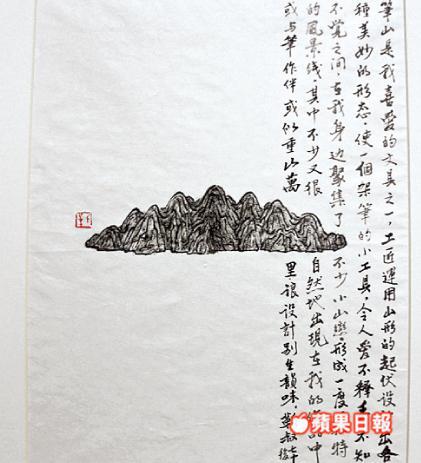 筆山是我喜愛的文具之一,工匠運用山形的起伏設出各
種美妙的形态,使一個架筆的小工具,令人愛不釋手不知
不覺之间,在我身边聚集了不少小山巒,形成一度特
的風景线,其中不少又很自然地出現在我的品中
或与筆作伴或似重山萬里設計别生韻味
蘋果日報